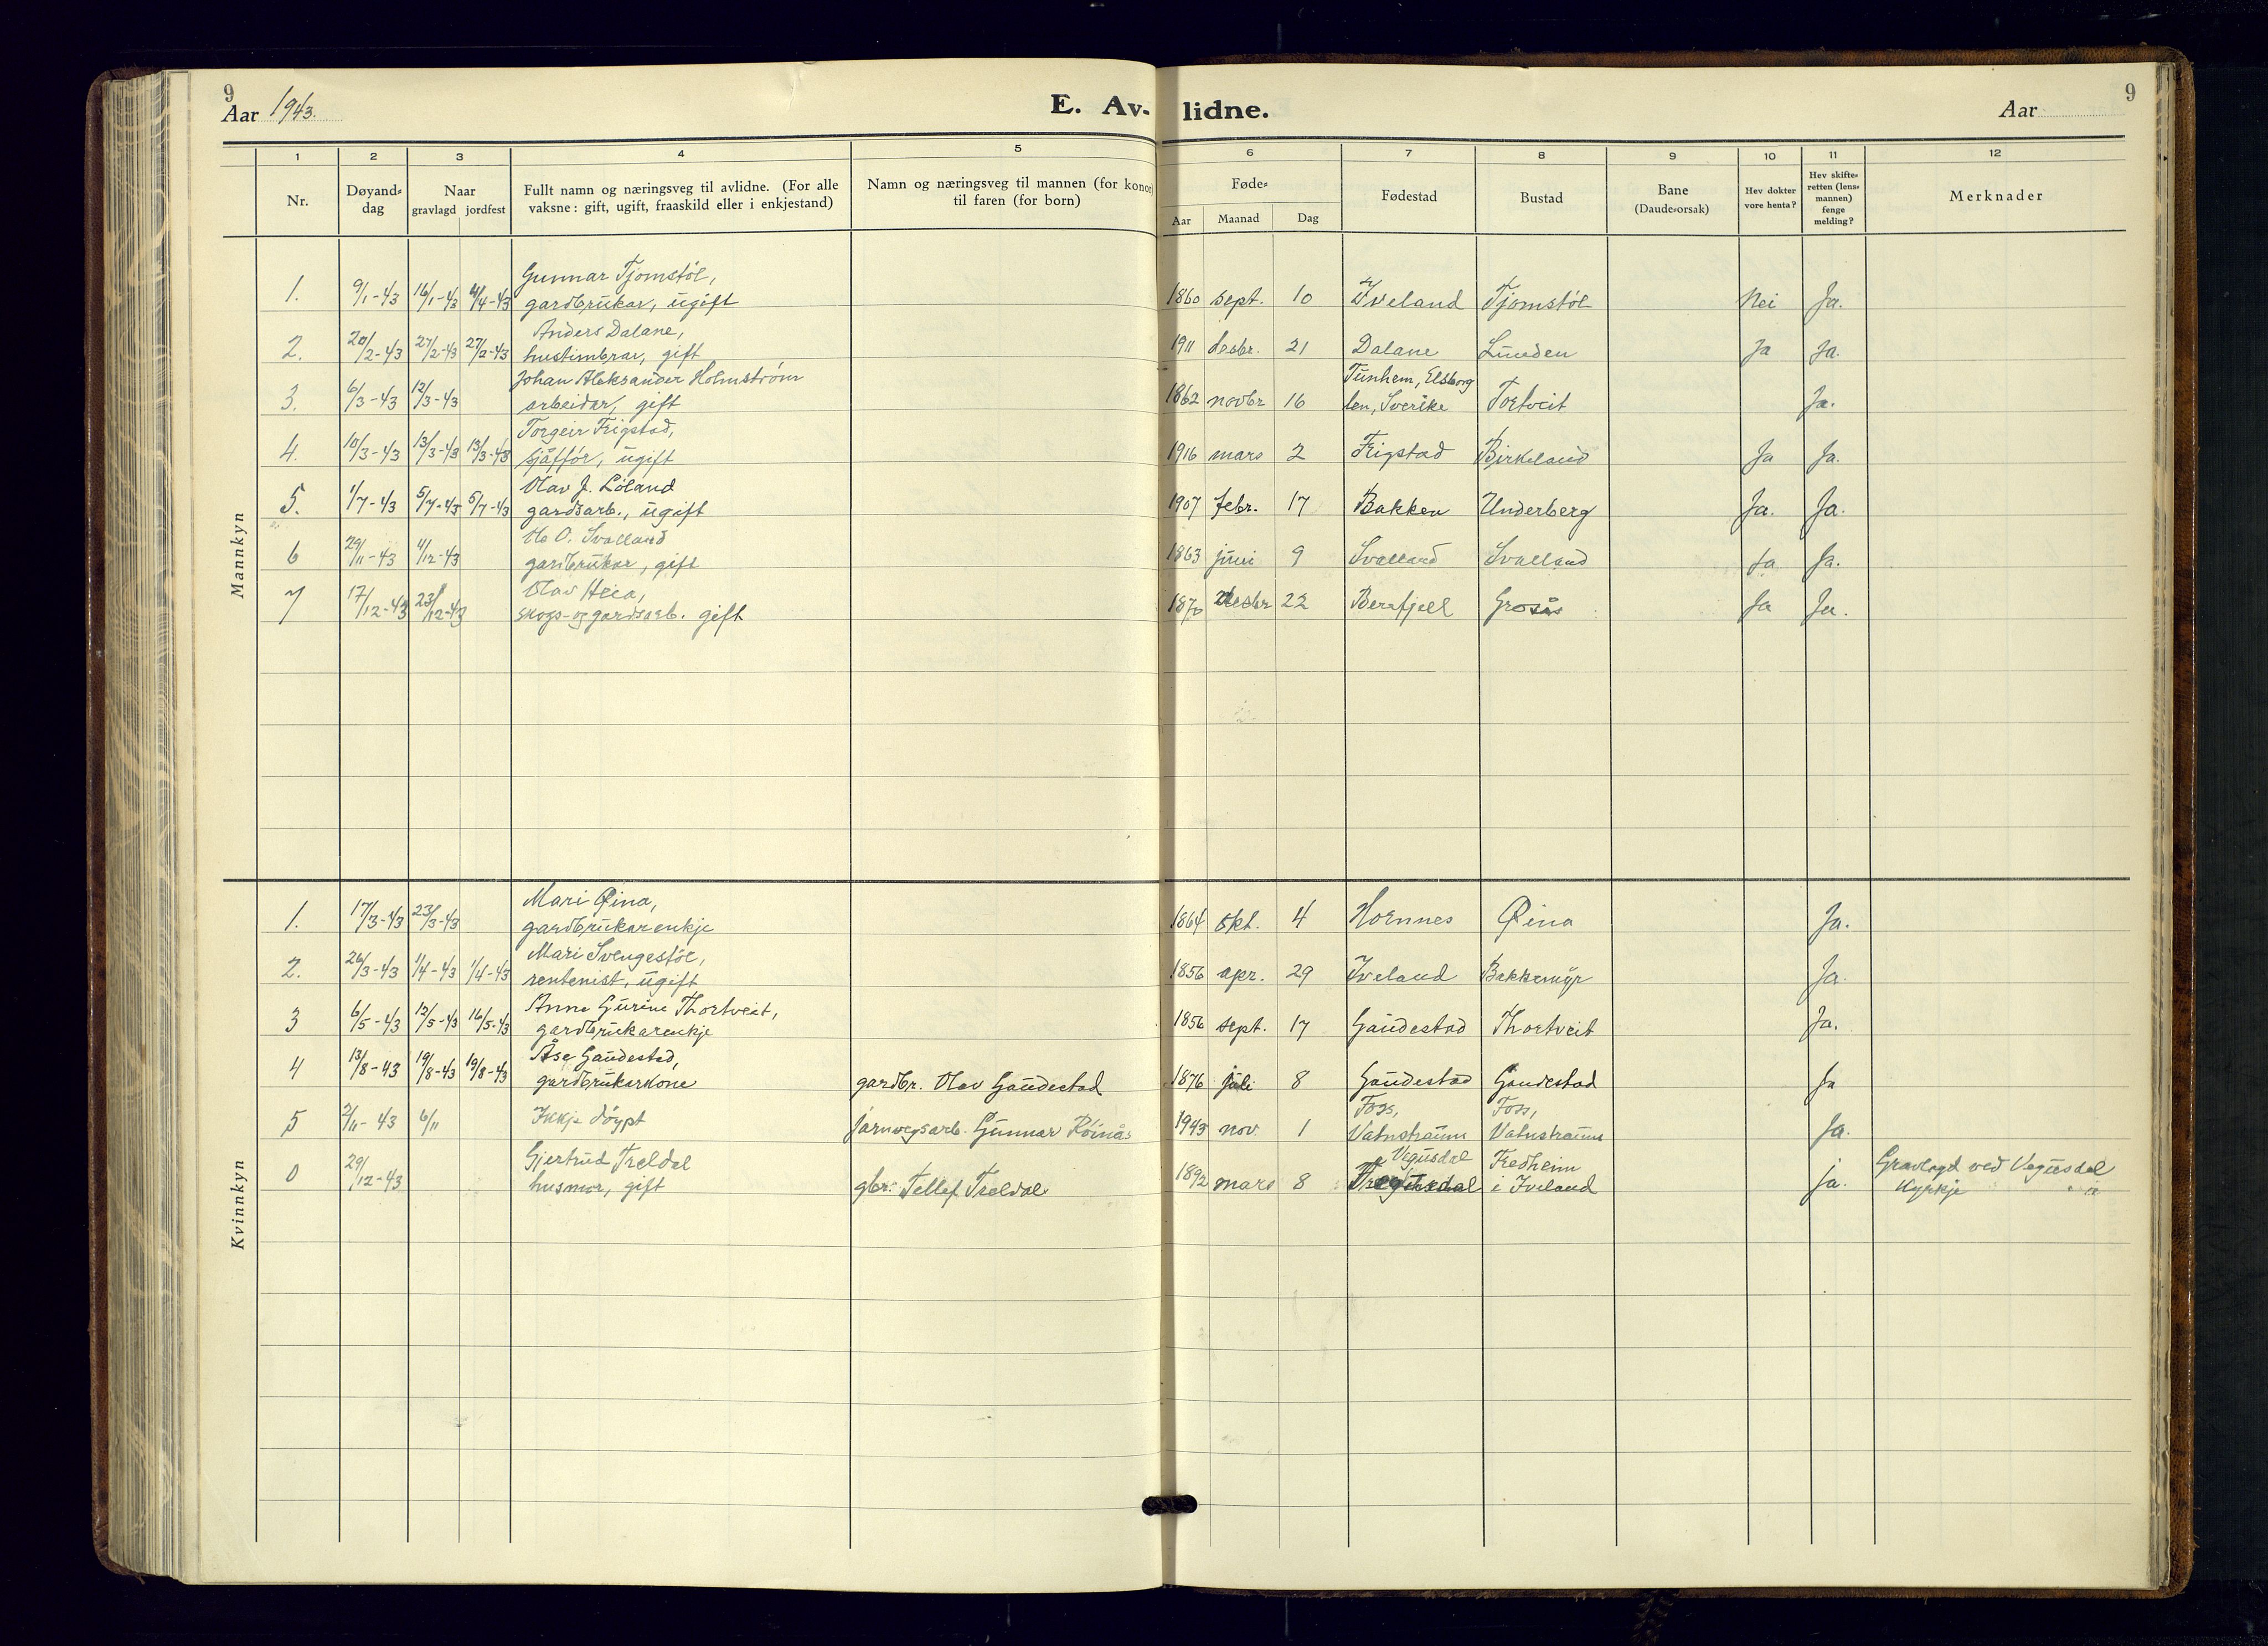 9
Aar 1943.
E. Av-
lidne.
Aar
9
1
2
3
4
5
6
7
8
9
10
11
12
Nr.
Døyand-
dag
Naar
gravlagd jordfest
Fullt namn og næringsveg til avlidne. (For alle
vaksne: gift, ugift, fraaskild eller i enkjestand)
Namn og næringsveg til mannen (for konor
til faren (for born)
Føde-
Aar Maanad Dag
Fødestad
Bustad
Bane
(Daude-orsak)
Hev dokter
vore henta?
Hev skifte-
retten (lens-
mannen)
fenge
melding?
Merknader
Mannkyn
Gunnar Tjomstøl,
1. 9/1-43 16/1-43 4/4-43 gardbrukar, ugift 1860 sept. 10 Iveland Tjomstøl Nei Ja.
Anders Dalane,
2. 20/2-43 27/2-43 27/2-43 hustimbrar, gift 1911 desbr. 21 Dalane Linden Ja Ja.
Johan Aleksander Holmstrøm Tunhem, Elsborg
3. 6/3-43 12/3-43 arbeidar, gift 1862 novbr 16 len, Sverike Tortveit Ja.
Torgeir Frigstad,
4. 10/3-43 13/3-43 13/3-43 sjåffør, ugift 1916 mars 2 Frigstad Birkeland Ja Ja.
Olav J. Løland
5. 1/7-43 5/7-43 5/7-43 gardsarb., ugift 1907 febr. 17 Bakken Underberg Ja. Ja.
O. Svalland
6 29/11-43 4/12-43 gardbrukar, gift 1863 juni 9 Svalland Svalland Ja Ja.
Olav Heia,
7 17/12-43 23/12-43 skogs- og gardsarb. gift 1870 desbr 22 Berefjell Grosås Ja Ja.
Kvinnkyn
Mari Øina,
1. 17/3-43 23/3-43 gardbrukarenkje 1864 okt. 4 Hornnes Øina Ja.
Mari Svengestøl,
2. 26/3-43 1/4-43 1/4-43 rentenist, ugift 1856 apr. 29 Iveland Bakkemyr Ja.
Anne Gurine Thortveit,
3 6/5-43 12/5-43 16/5-43 gardbrukarenkje 1856 sept. 17 Gaudestad Thortveit Ja.
Åse Gaudestad,
4 13/8-43 19/8-43 19/8-43 gardbrukarkone gardbr. Olav Gaudestad 1876 juli 8 Gaudestad Gaudestad Ja
Foss, Foss,
5 2/11-43 6/11 Ikkje døypt jarnvegsarb. Gunnar Røinås 1943 nov. 1 Vatnstraum Vatnstraum Ja.
Gjertrud Treldal Vegusdal Fredheim Gravlagd ved Vegusdal
0 29/12-43 husmor, gift gbr. Tellef Treldal 1892 mars 8 i Iveland ja. Kyrkje